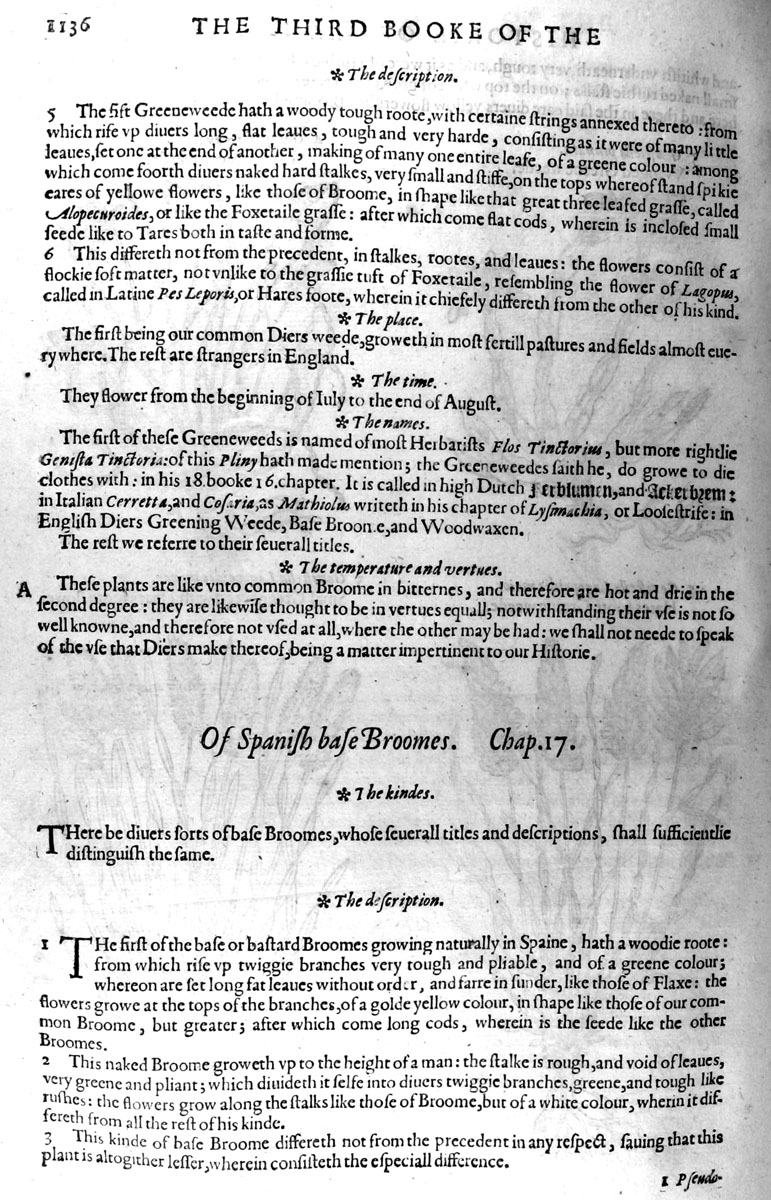 1136 THE THIRD BOOKE OF THE
✻ The deſcription.
5 The fift Greeneweede hath a woody tough roote, with certaine ſtrings annexed thereto : from
which riſe vp diuers long, flat leaues, tough and very harde, conſiſting as it were of many little
leaues, ſet one at the end of another, making of many one entire leafe, of a greene colour : among
which come foorth diuers naked hard ſtalkes, very ſmall and ſtiffe, on the tops whereof ſtand ſpikie
eares of yellowe flowers, like thoſe of Broome, in ſhape like that great three leafed graſſe, called
Alopecuroides, or like the Foxetaile graſſe : after which come flat cods, wherein is incloſed ſmall
ſeede like to Tares both in taſte and forme.
6 This differeth not from the precedent, in ſtalkes, rootes, and leaues: the flowers conſiſt of a
flockie ſoft matter, not vnlike to the graſſie tuft of Foxetaile, reſembling the flower of Lagopus,
called in Latine Pes Leporis, or Hares foote, wherein it chiefely differeth from the other of his kind.
✻ The place.
The firſt being our common Diers weede, groweth in moſt fertill paſtures and fields almoſt eue-
ry where. The reſt are ſtrangers in England.
✻ The time.
They flower from the beginning of Iuly to the end of Auguſt.
✻ The names.
The firſt of theſe Greeneweeds is named of moſt Herbariſts Flos Tinctorius, but more rightlie
Geniſta Tinctoria: of this Pliny hath made mention; the Greeneweedes ſaith he, do growe to die
clothes with : in his 18. booke 16. chapter. It is called in high Dutch and
in Italian Cerretta, and Coſaria, as Mathiolus writeth in his chapter of Lyſimachia, or Looſeſtrife: in
Engliſh Diers Greening Weede, Baſe Broome, and Woodwaxen.
The reſt we referre to their ſeuerall titles.
✻ The temperature and vertues.
A Theſe plants are like vnto common Broome in bitternes, and therefore are hot and drie in the
ſecond degree : they are likewiſe thought to be in vertues equall; notwithſtanding their vſe is not ſo
well knowne, and therefore not vſed at all, where the other may be had: we ſhall not neede to ſpeak
of the vſe that Diers make thereof, being a matter impertinent to our Hiſtorie.
Of Spaniſh baſe Broomes. Chap. 17.
✻ The kindes.
THere be diuers ſorts of baſe Broomes, whoſe ſeuerall titles and deſcriptions, ſhall ſufficientlie
diſtinguiſh the ſame.
✻ The deſcription.
1 THe firſt of the baſe or baſtard Broomes growing naturally in Spaine, hath a woodie roote:
from which riſe vp twiggie branches very tough and pliable, and of a greene colour;
whereon are ſet long fat leaues without order, and farre in ſunder, like thoſe of Flaxe: the
flowers growe at the tops of the branches, of a golde yellow colour, in ſhape like thoſe of our com-
mon Broome, but greater; after which come long cods, wherein is the ſeede like the other
Broomes.
2 This naked Broome groweth vp to the height of a man: the ſtalke is rough, and void of leaues,
very greene and pliant; which diuideth it ſelfe into diuers twiggie branches, greene, and tough like
ruſhes: the flowers grow along the ſtalks like thoſe of Broome, but of a white colour, wherin it dif-
fereth from all the reſt of his kinde.
3 This kinde of baſe Broome differeth not from the precedent in any reſpect, ſauing that this
plant is altogither leſſer, wherein conſiſteth the eſpeciall difference.
1 Pſeudo-